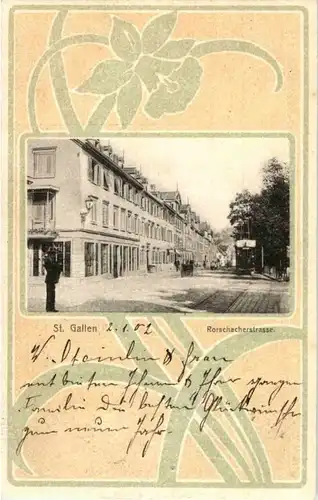 St. Gallen 2.1.02 Rorschacherstrasse.
W. & Frau
Ihnen & Ihrer ganzen
Familie die besten Glückwünsche
zum neuen Jahr.